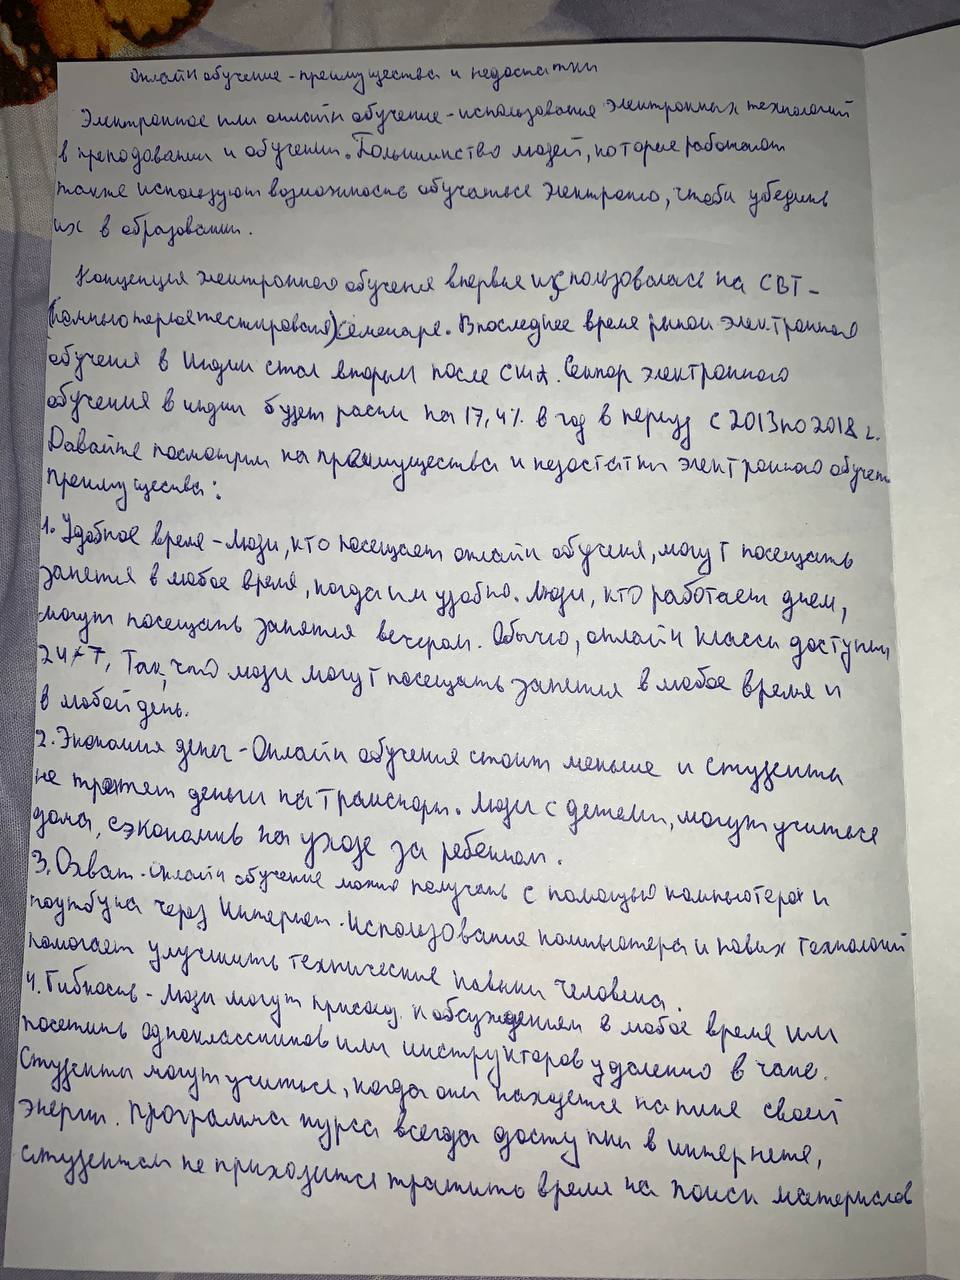 Онлайн обучение - преимущества и недостатки
Электронное или онлайн обучение - использование электронных технологий
в преподовании и обучении. Большинство людей, которые работают
также используют возможность обучаться электронно, чтоби убедить
их в образовании.
Концепция электронного обучения впервые использовалась на CBT -
(компьютерное тестирование) семенаре. В последнее время рынок электронного
обучения в Индии стал вторым после США. Сектор электронного
обучения в индии будет расти на 17,4% в год в период с 2013 по 2018 г.
Давайте посмотрим на преимущества и недостатки электронного обучен.
Преимущества:
1. Удобное время - Люди, кто посещает онлайн обучения, могут посещать
занятия в любое время, когда им удобно. Люди, кто работает днем,
могут посещать занятия вечером. Обычно, онлайн класси доступни
24/7, Так что люди могут посещать занятия в любое время и
в любой день.
2. Экономия денег - Онлайн обучения стоит меньше и студенти
не тратят деньги на транспорт. Люди с детьми, могут учиться
дома, сэкономив на уходе за ребенком.
3. Охват - онлайн обучение можно получить с помощью компьютера и
ноутбука через Интернет. Использование компьютера и нових технологий
помогает улучшить технические навыки человека.
4. Гибкость - люди могут присоед. к обсуждениям в любое время или
посетить одноклассников или инструкторов удаленно в чате.
Студенты могут учиться, когда они находятся на пике своей
энергии. Программа курса всегда доступни в интернете,
студентам не приходится тратить время на поиск материалов